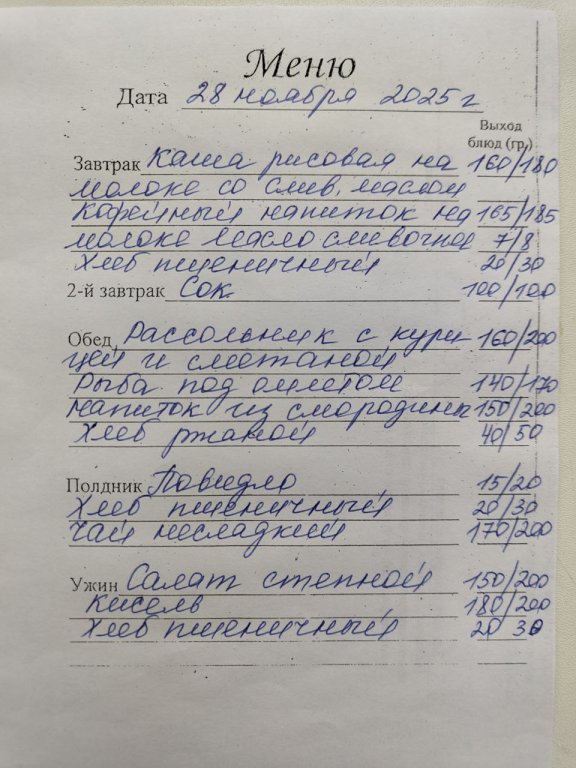 Меню
Дата 28 ноября 2025 г
Выход
блюд (гр.)
Завтрак Каша рисовая на 160/180
молоке со слив. маслом
Кофейный напиток на 165/185
молоке Масло сливочное 7/8
Хлеб пшеничный 20/30
2-й завтрак Сок 100/100
Обед Рассольник с кури 160/200
цей и сметаной
Рыба под омлетом 140/170
Напиток из смородины 150/200
Хлеб ржаной 40/50
Полдник Повидло 15/20
Хлеб пшеничный 20/30
Чай несладкий 170/200
Ужин Салат степной 150/200
Кисель 180/200
Хлеб пшеничный 20 30